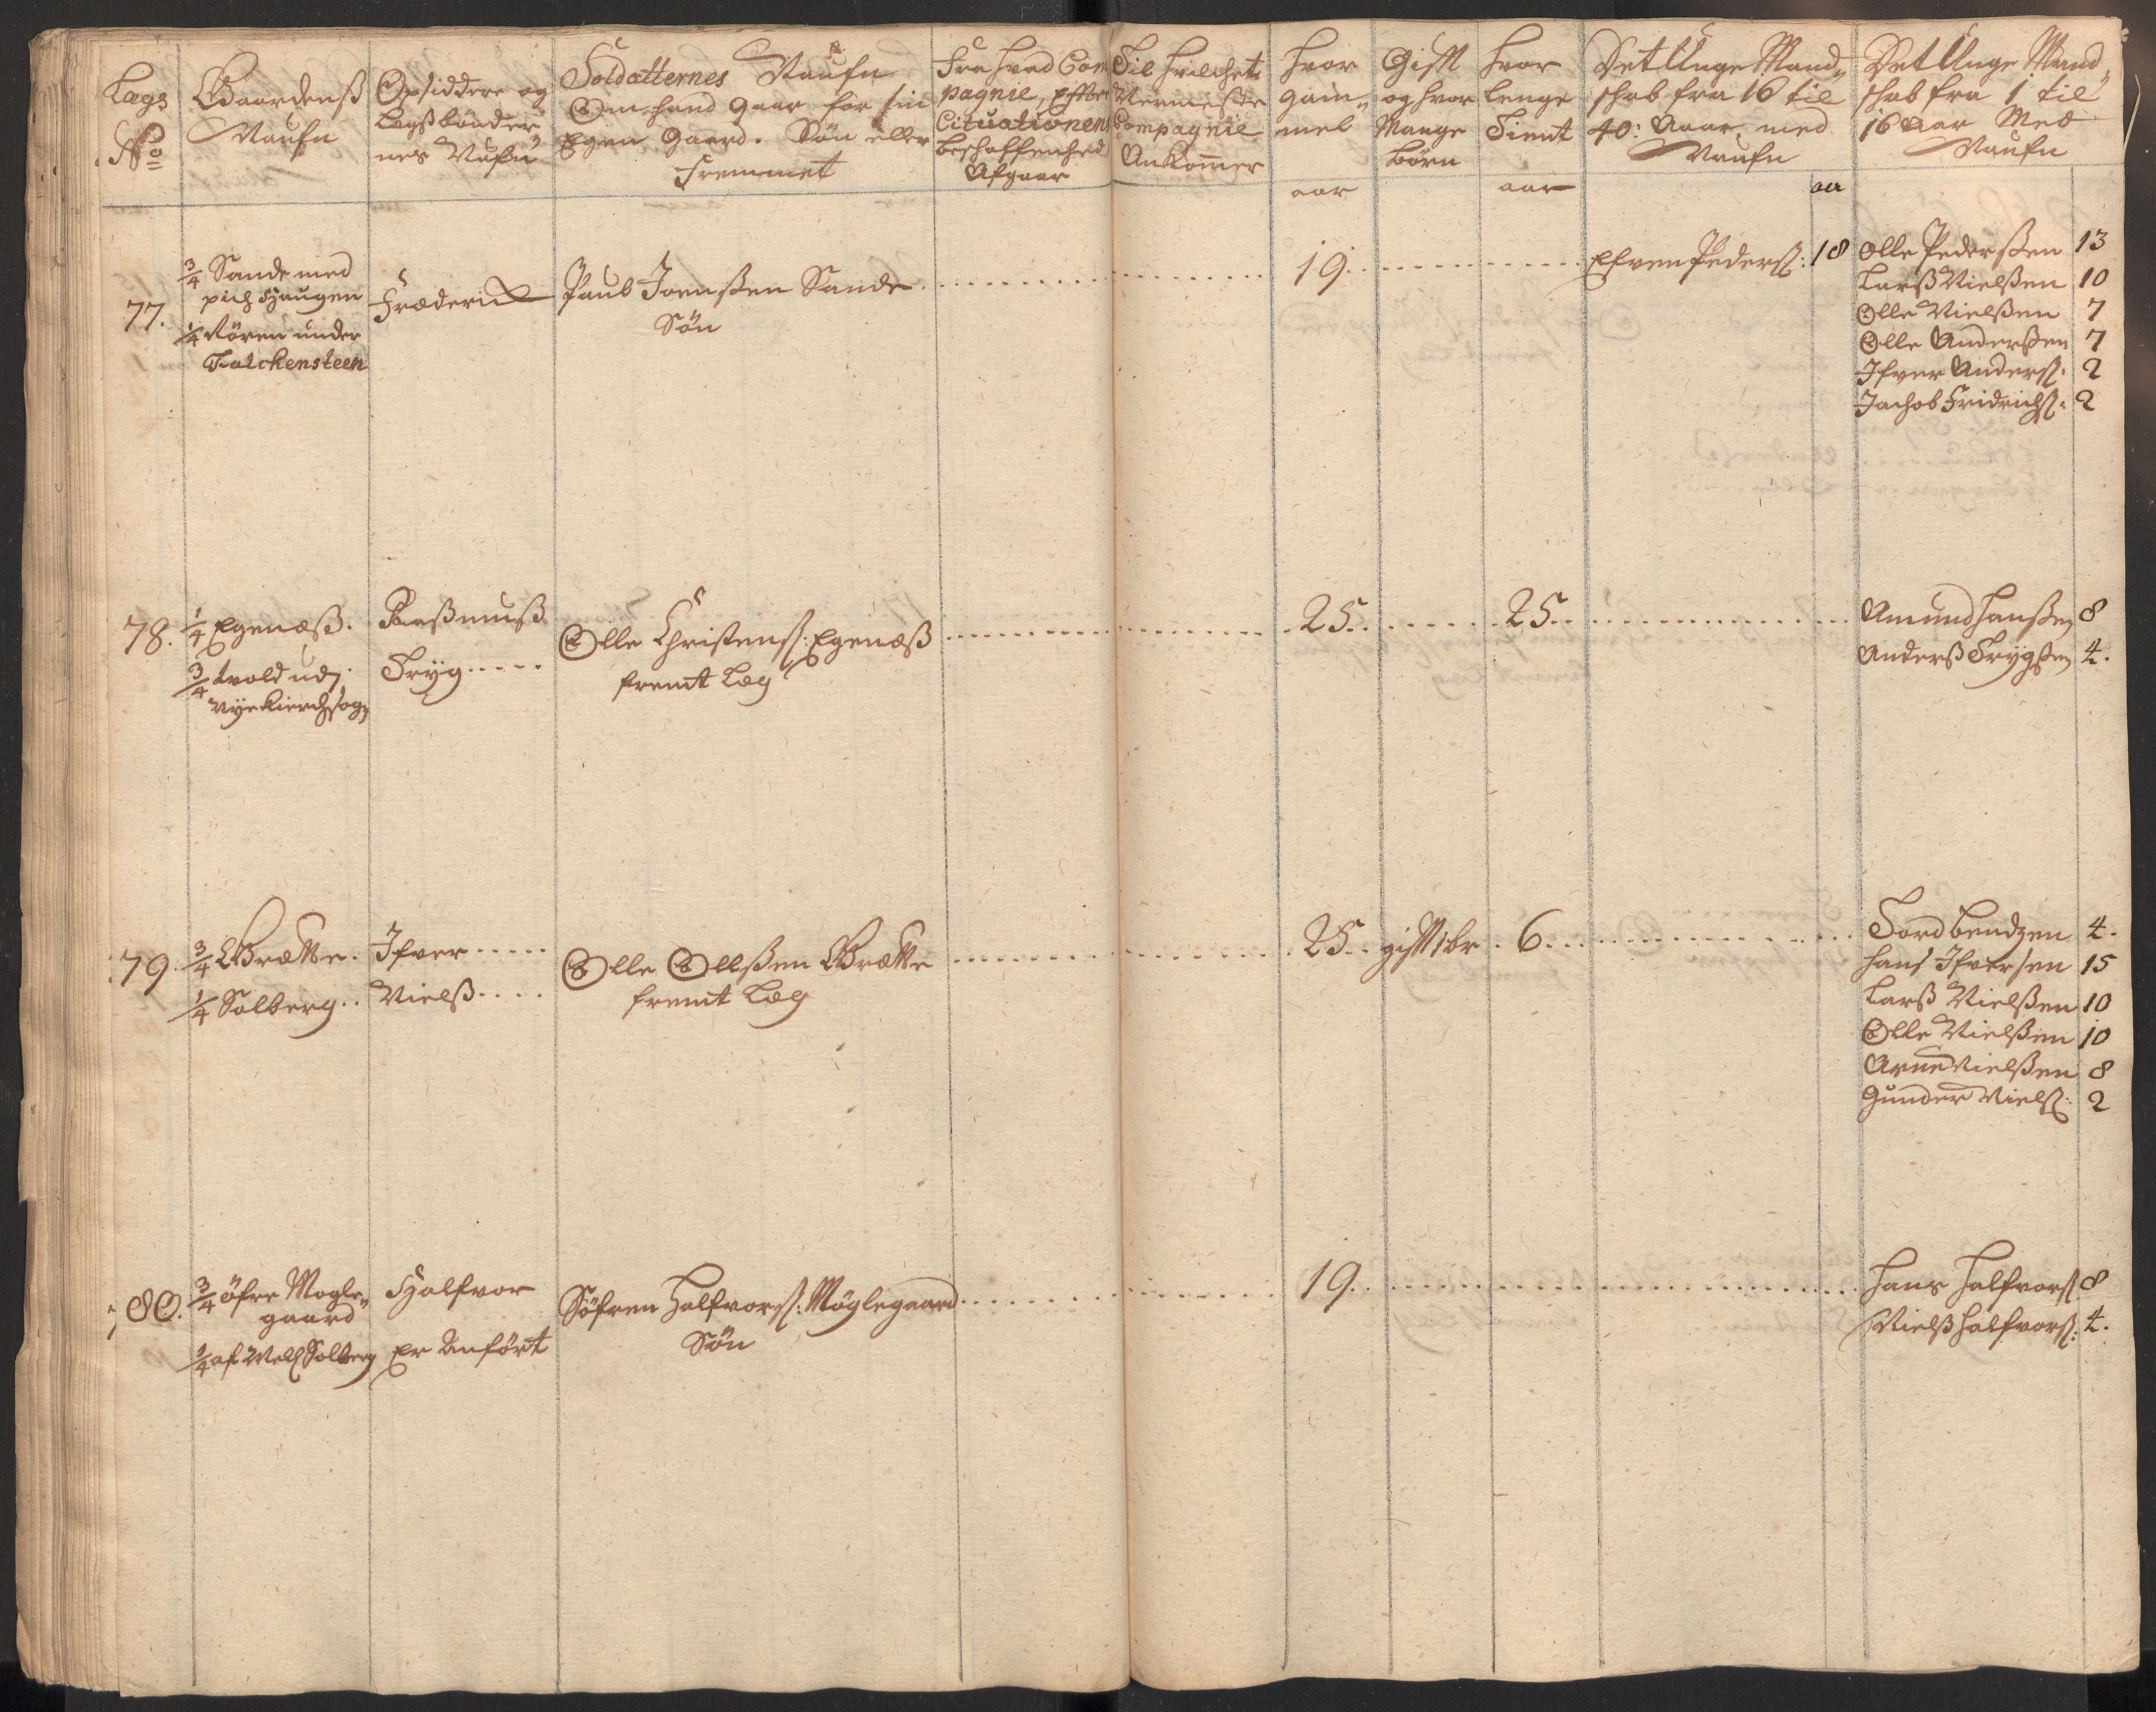 Lægs
No
Gaardenß
Naufn
Opsiddere og
Legsbønder
nes Nafn
Soldatternes Naufn
Om hand gaar for sin
Egen Gaard. Søn eller
Fremmet
Fra hvad Com
pagnie, Effter
Cituationens
beschaffenhed
Afgaar
Til hvilchet
Nermeste
Compagnie
Ankommer
Hvor
gam„
mel
aar
Gifft
og hvor
Mange
børn
Hvor
lenge
Tient
aar
Det Unge Mand„
schab fra 16 til
40: Aaar, med
Naufn
aar
Det Unge Mand„
schab fra 1 til
16 Aar Med
Naufn
77.
3/4 Sande med
pldz Haugen
1/4 Røren under
Falchensteen
Fræderich
Paul Joenßen Sande
Søn
19
Efven Pederß: 18
Olle Pederßen 13
Larß Nielßen 10
Olle Nielßen 7
Olle Anderßen 7
Ifver Anderß: 2
Jachob Fridrichß: 2
78.
1/4 Egenæß.
3/4 Kvold udj
Nykierchsogn
Raßmuß
Tryg
Olle Christenß: Egenæß
fremt Læg
25
25
Amund Hanßen 8
Anderß Trygßen 4.
79.
3/4 Grætte.
1/4 Solberg
Ifver
Nielß
Olle Ollßen Grætte
fremt Læg
25 gifft 1 br 6
Tord bendzen 4.
Hans Ifversen 15
Larß Nielßen 10
Olle Nielßen 10
Arne Nielßen 8
Gunder Nielß: 2
80.
3/4 öfre Mogle„
gaard
1/4 af Vell Solberg
Halfvor
Er Anført
Söfren Halfvorß: Møglegaard
Søn
19
Hans Halfvorß 8
Nielß Halfvorß: 4.